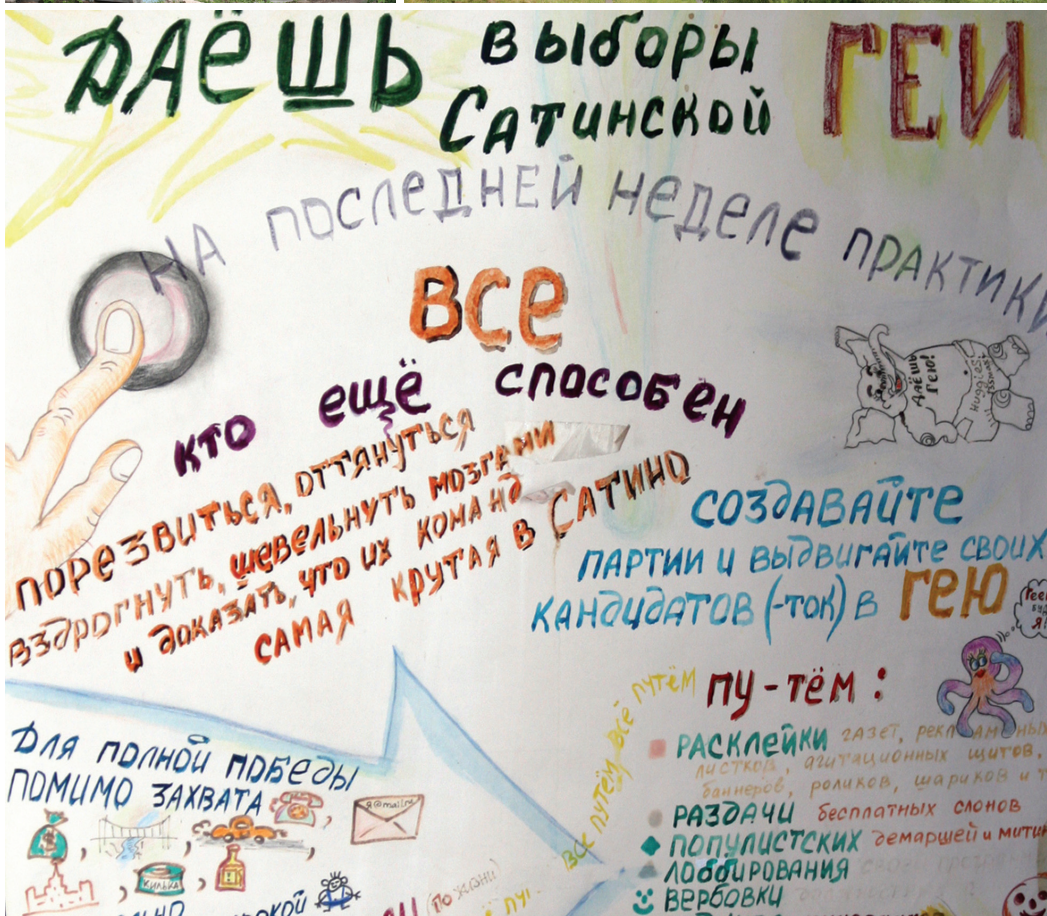 ДАЁШЬ выборы Сатинской ГЕИ
НА ПОСЛЕДНЕЙ НЕДЕЛЕ ПРАКТИКИ
ВСЕ
кто ещё способен
порезвиться, оттянуться
вздрогнуть, шевельнуть мозгами
и доказать, что их команд
самая крутая в Сатино
ДАЁШЬ ГЕЮ!
Huggies
СОЗДАВАЙТЕ
ПАРТИИ И ВЫДВИГАЙТЕ СВОИХ
КАНДИДАТОВ (-ТОК) В ГЕЮ
ПУ-ТЁМ:
РАСКЛЕЙКИ газет, рекламных
листков, агитационных щитов,
баннеров, роликов, шариков и т
РАЗДАЧИ бесплатных слонов
ПОПУЛИСТСКИХ демаршей и митин
ЛОББИРОВАНИЯ
ВЕРБОВКИ
ВСЁ ПУТЁМ, ВСЁ ПУТЁМ
Для полной победы
помимо захвата
я@mail.ru
КИЛЬКА
(по жизни)